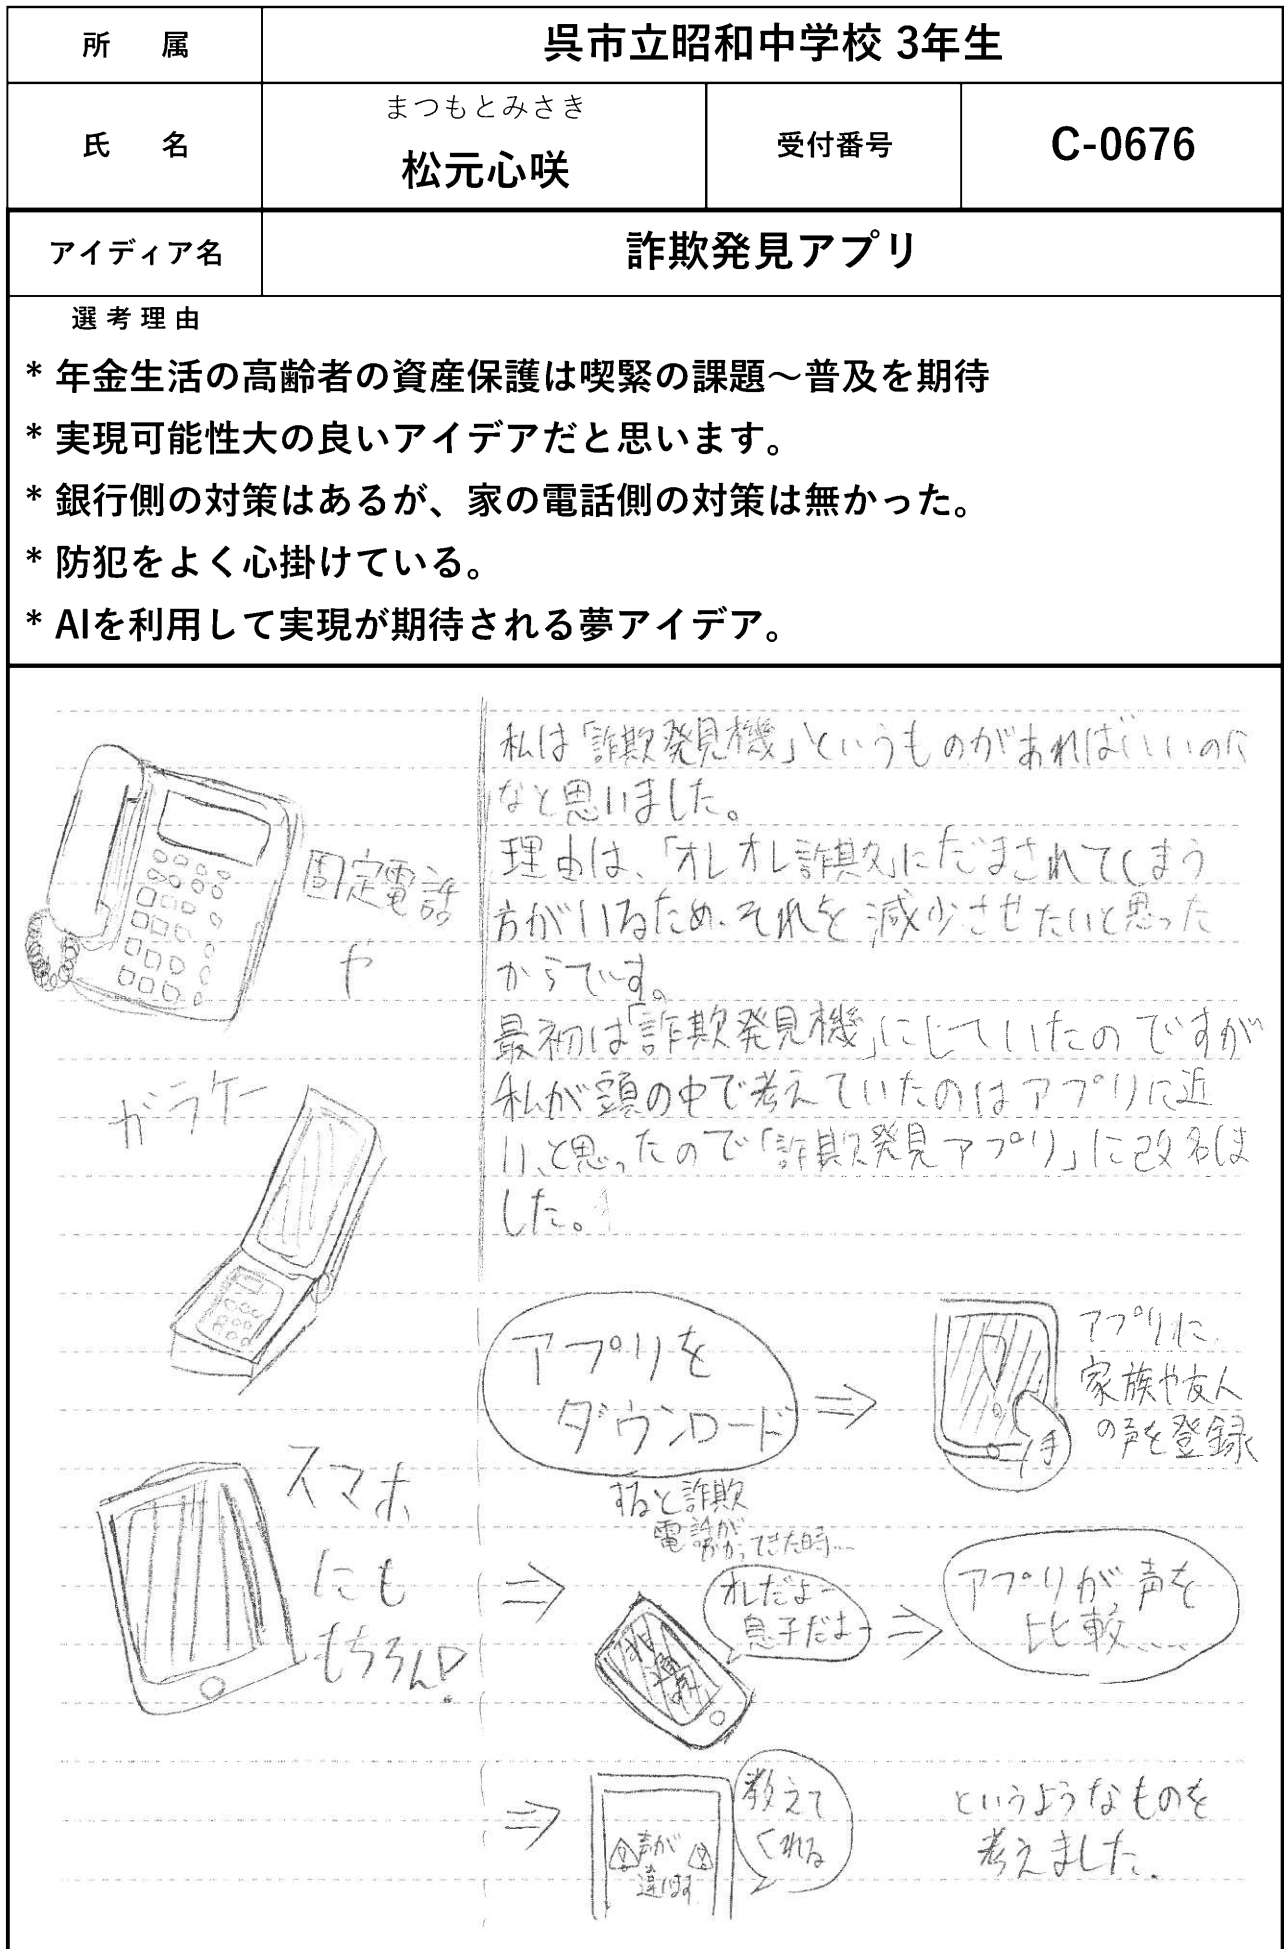 所　属
呉市立昭和中学校 3年生
氏　名
まつもとみさき
松元心咲
受付番号
C-0676
アイディア名
詐欺発見アプリ
選考理由
* 年金生活の高齢者の資産保護は喫緊の課題～普及を期待
* 実現可能性大の良いアイデアだと思います。
* 銀行側の対策はあるが、家の電話側の対策は無かった。
* 防犯をよく心掛けている。
* AIを利用して実現が期待される夢アイデア。
固定電話
や
ガラケー
スマホ
にも
もちろん!
私は「詐欺発見機」というものがあればいいのに
なと思いました。
理由は、「オレオレ詐欺」にだまされてしまう
方がいるため、それを減少させたいと思った
からです。
最初は「詐欺発見機」にしていたのですが
私が頭の中で考えていたのはアプリに近
い、と思ったので「詐欺発見アプリ」に改名は
した。
アプリを
ダウンロード
⇒
アプリに
家族や友人
の声を登録
手
すると詐欺
電話が
かかってきた時…
⇒
オレだよー
息子だよー
⇒
アプリが声を
比較….
⇒
声が
違います
教えて
くれる
というようなものを
考えました.